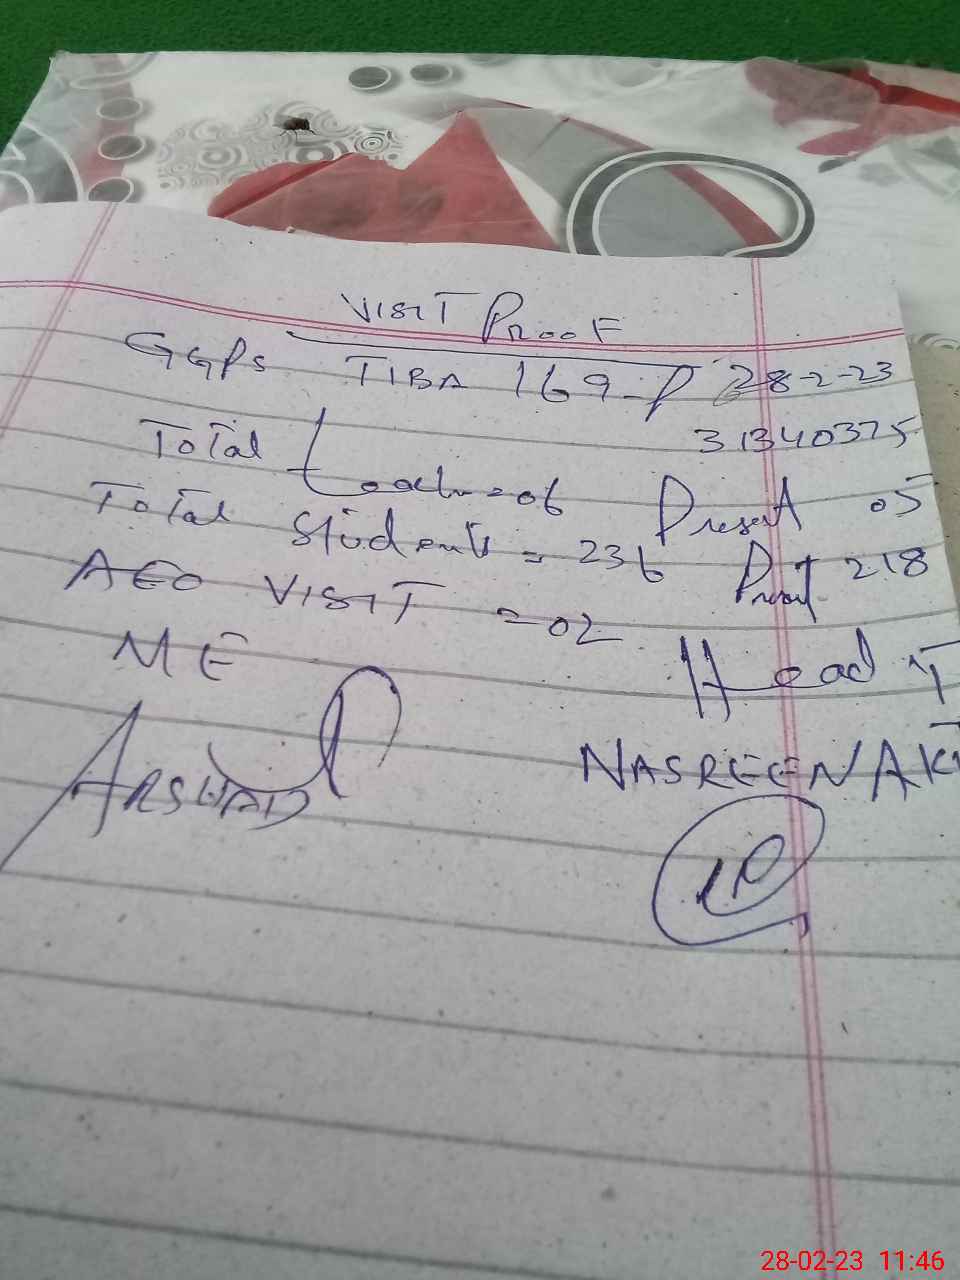 VISIT PROOF
GGPS TIBA 169-P 28-2-23
31340375
Total Teacher = 06 Present 05
Total Students = 236 Present 218
AEO VISIT = 02
ME Head T
ARSHAD NASREEN AK
28-02-23 11:46